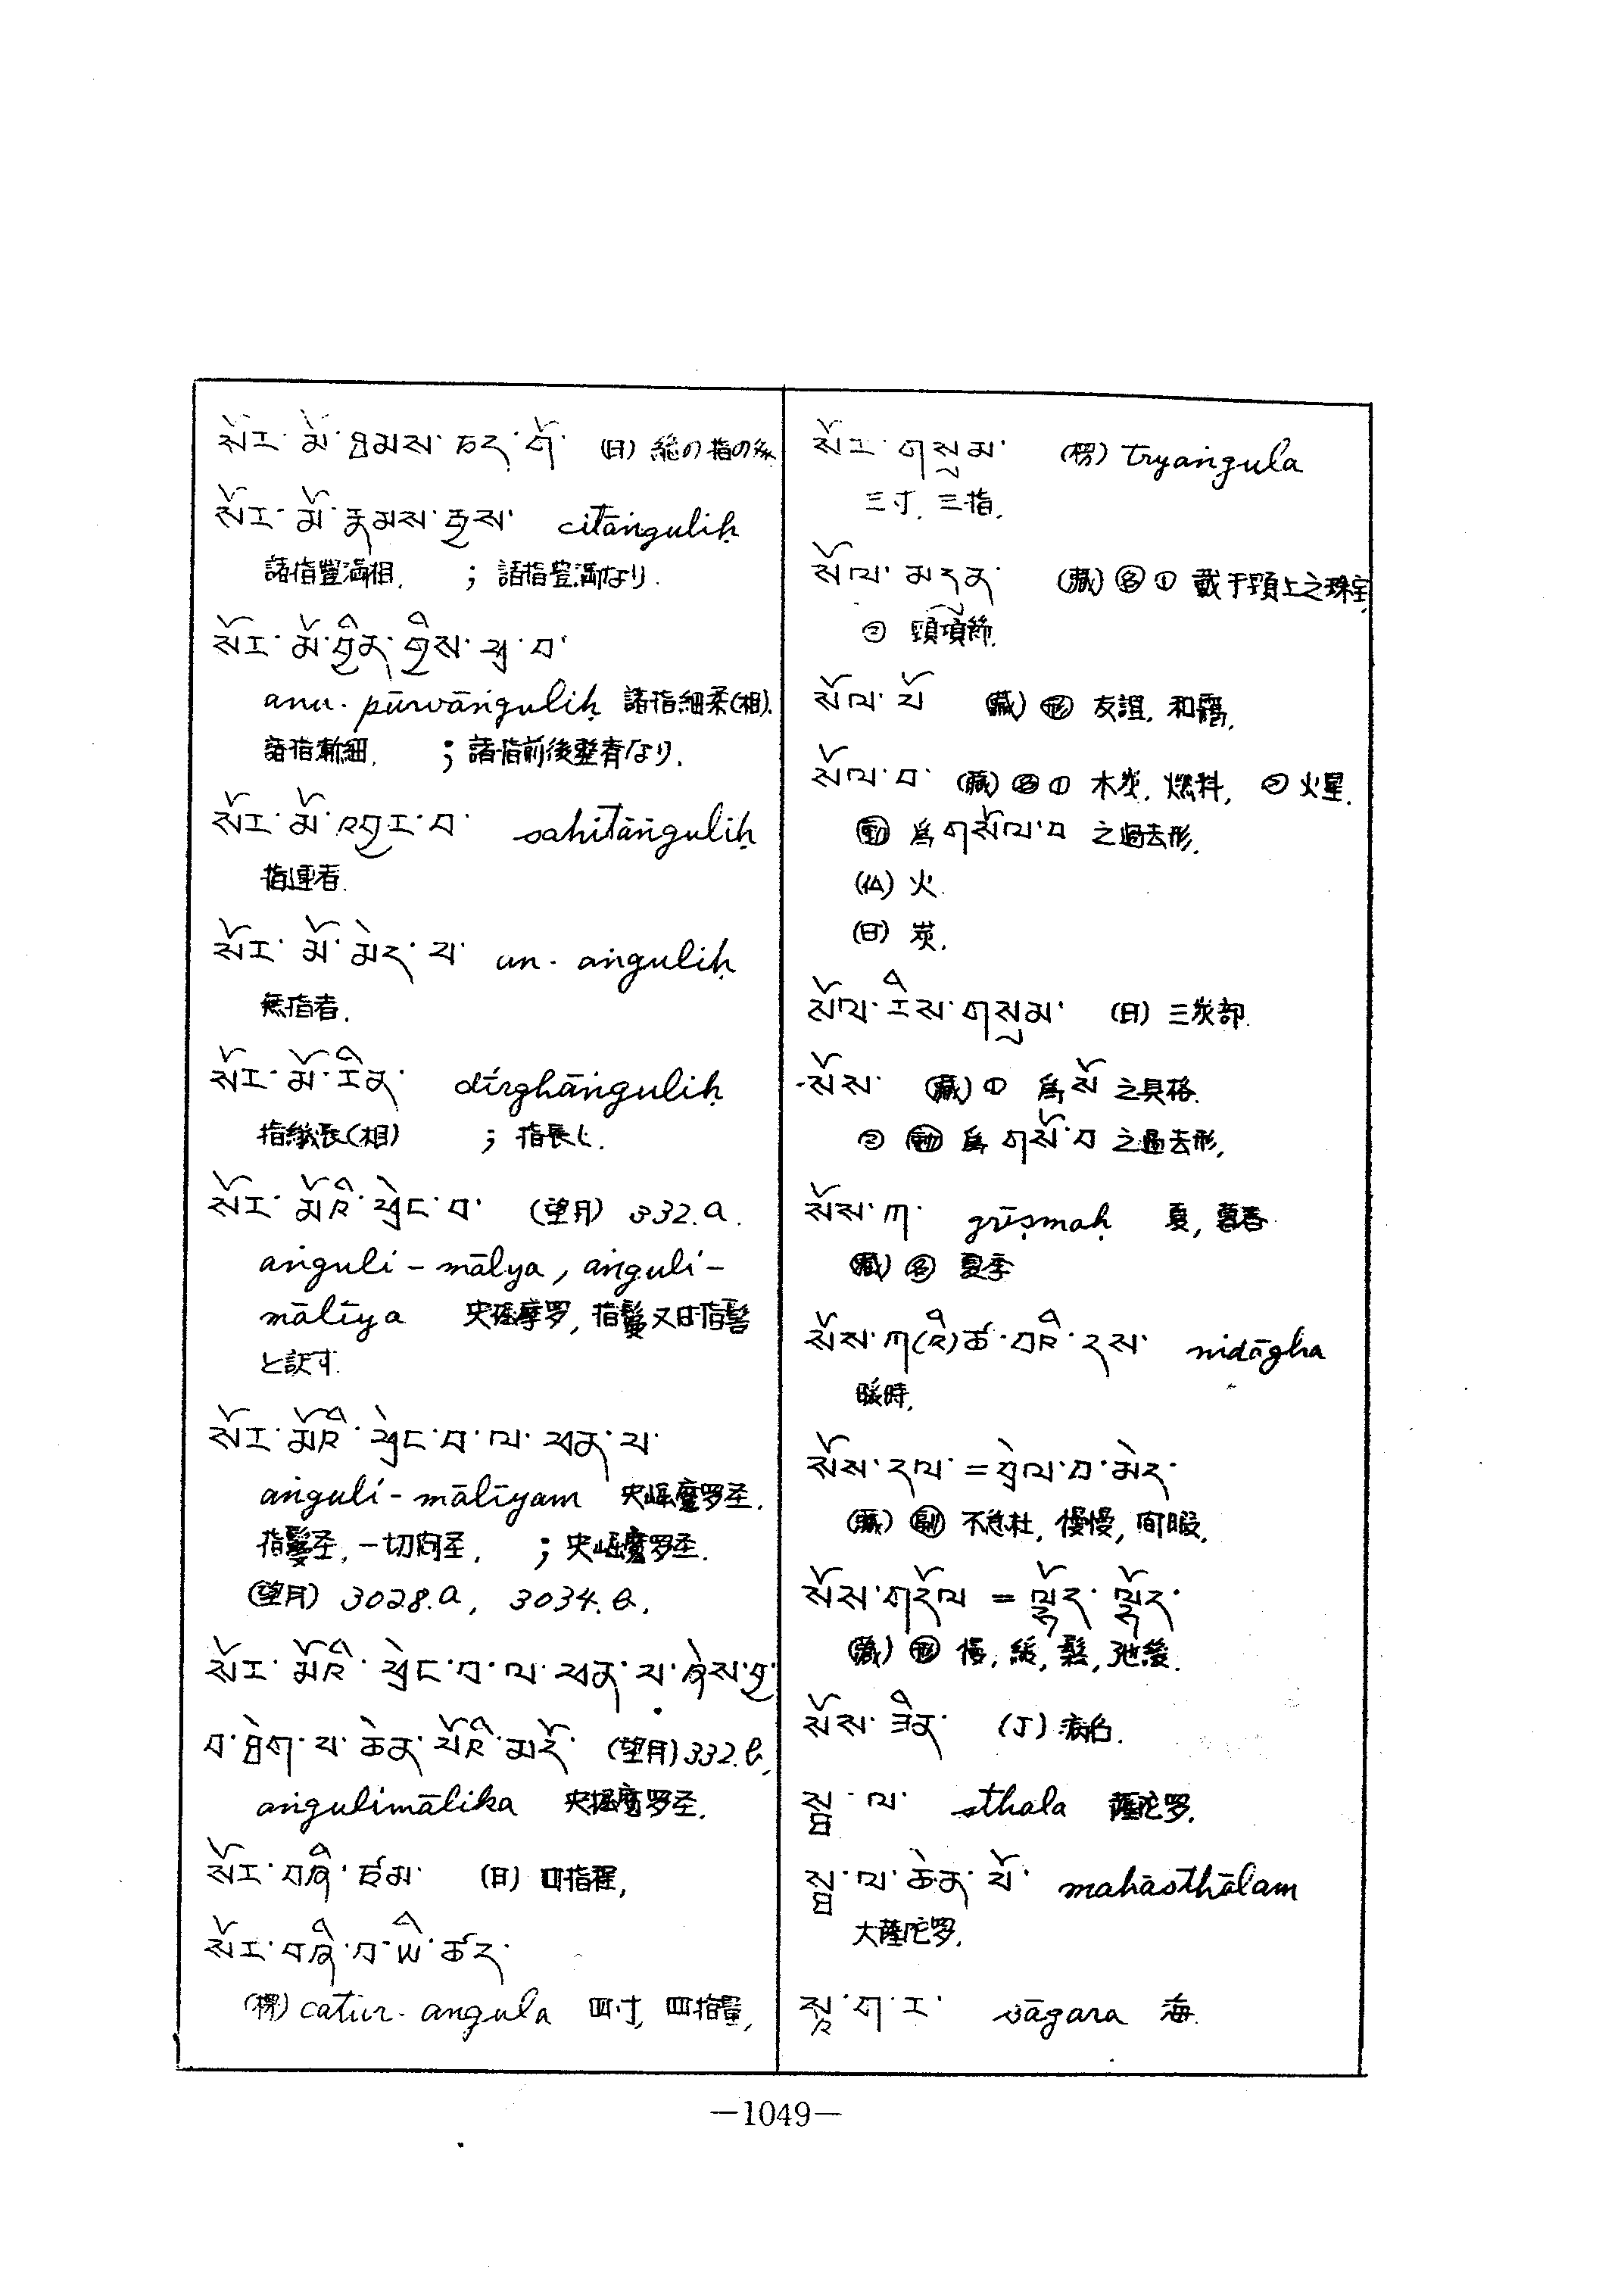 སོར་མོ་ཐམས་ཅད་ཀོ་ (日) 総の指の
སོར་མོ་རྣམས་རྒྱས་ citāṅguliḥ
諸指豐満相. ; 諸指豊満なり.
སོར་མོ་བྱིན་གྱིས་ཕྲ་བ་
anu-pūrvāṅguliḥ 諸指細柔(相).
諸指漸細. ; 諸指前後整斉なり.
སོར་མོ་འབྱར་བ་ sahitāṅguliḥ
指連者.
སོར་མོ་མེད་པ་ un-aṅguliḥ
無指者.
སོར་མོ་རིན་ dīrghāṅguliḥ
指繊長(相) ; 指長し.
སོར་མོའི་ཕྲེང་བ་ (望月) 332.a.
aṅguli-mālya, aṅguli-
mālīya 央掘摩罗, 指鬘又曰指髻
と訳す.
སོར་མོའི་ཕྲེང་བ་ལ་ཕན་པ་
aṅguli-mālīyam 央崛魔罗圣.
指鬘圣, 一切向圣. ; 央崛魔罗圣.
(望月) 3028.a, 3034.b.
སོར་མོའི་ཕྲེང་བ་ལ་ཕན་པ་ཞེས་བྱ་
བ་ཐེག་པ་ཆེན་པོའི་མདོ་ (望月) 332.b.
aṅgulimālika 央掘魔罗圣.
སོར་བཞི་ཙམ་ (日) 四指程,
སོར་བཞི་བ་ཡི་ཚད་
(楞) catur-aṅgula 四寸, 四指量,
སོར་གསུམ་ (楞) tryaṅgula
三寸. 三指.
སོལ་མདན་ (藏) 名 ① 戴于頸上之珠宝,
② 頸項節.
སོལ་པོ (藏) 形 友誼, 和靄.
སོལ་བ་ (藏) 名 ① 木炭. 燃料, ② 火星.
動 為 གསོལ་བ 之過去形.
(仏) 火.
(日) 炭.
སོལ་རིས་གསུམ་ (日) 三炭部.
སོས་ (藏) ① 為 སོ 之具格.
② 動 為 གསོ་བ 之過去形.
སོས་ཀ་ grīṣmaḥ 夏, 暮春.
(藏) 名 夏季
སོས་ཀ(འི)ཚ་བའི་དས་ nidāgha
暖時.
སོས་དལ་=བྲེལ་བ་མེད་
(藏) 副 不急杜, 慢慢, 间暇.
སོས་གདོལ = ལྷོད་ལྷོད་
(藏) 形 慢, 緩, 鬆, 弛緩.
སོས་ཟིན་ (J) 病名.
སྠ་ལ་ sthala 薩陀罗.
སྠ་ལ་ཆེན་པོ་ mahāsthālam
大薩陀罗.
སཱ་ག་ར་ sāgara 海.
—1049—